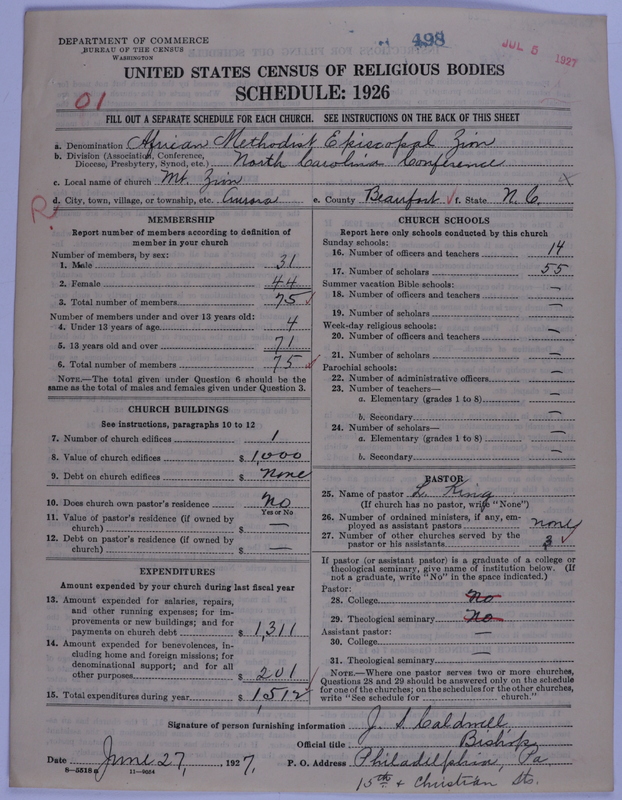 DEPARTMENT OF COMMERCE
BUREAU OF THE CENSUS
WASHINGTON
498
JUL 5 1927
UNITED STATES CENSUS OF RELIGIOUS BODIES
SCHEDULE: 1926
01
FILL OUT A SEPARATE SCHEDULE FOR EACH CHURCH. SEE INSTRUCTIONS ON THE BACK OF THIS SHEET
a. Denomination African Methodist Episcopal Zion
b. Division (Association, Conference, Diocese, Presbytery, Synod, etc.) North Carolina Conference
c. Local name of church Mt. Zion
d. City, town, village, or township, etc. Aurora e. County Beaufort ✓ f. State N. C.
R
MEMBERSHIP
Report number of members according to definition of
member in your church
Number of members, by sex:
1. Male 31
2. Female 44
3. Total number of members 75 ✓
Number of members under and over 13 years old:
4. Under 13 years of age 4
5. 13 years old and over 71
6. Total number of members 75 ✓
NOTE.—The total given under Question 6 should be
same as the total of males and females given under Question 3.
CHURCH BUILDINGS
See instructions, paragraphs 10 to 12
7. Number of church edifices 1
8. Value of church edifices $ 1,000
9. Debt on church edifices $ None
10. Does church own pastor's residence No
Yes or No
11. Value of pastor's residence (if owned by
church) $ —
12. Debt on pastor's residence (if owned by
church) $ —
EXPENDITURES
Amount expended by your church during last fiscal year
13. Amount expended for salaries, repairs,
and other running expenses; for im-
provements or new buildings; and for
payments on church debt $ 1,311
14. Amount expended for benevolences, in-
cluding home and foreign missions; for
denominational support; and for all
other purposes $ 201
15. Total expenditures during year $ 1,512
CHURCH SCHOOLS
Report here only schools conducted by this church
Sunday schools:
16. Number of officers and teachers 14
17. Number of scholars 55
Summer vacation Bible schools:
18. Number of officers and teachers —
19. Number of scholars —
Week-day religious schools:
20. Number of officers and teachers —
21. Number of scholars —
Parochial schools:
22. Number of administrative officers —
23. Number of teachers—
a. Elementary (grades 1 to 8) —
b. Secondary —
24. Number of scholars—
a. Elementary (grades 1 to 8) —
b. Secondary —
PASTOR
25. Name of pastor L. King
(If church has no pastor, write "None")
26. Number of ordained ministers, if any, em-
ployed as assistant pastors none
27. Number of other churches served by the
pastor or his assistants 3 ✓
If pastor (or assistant pastor) is a graduate of a college or
theological seminary, give name of institution below. (If
not a graduate, write "No" in the space indicated.)
Pastor:
28. College No
29. Theological seminary No
Assistant pastor:
30. College —
31. Theological seminary —
NOTE.—Where one pastor serves two or more churches,
Questions 28 and 29 should be answered only on the schedule
for one of the churches; on the schedules for the other churches,
write "See schedule for church."
Signature of person furnishing information J. S. Caldwell,
Official title Bishop
Date June 27, 1927. P. O. Address Philadelphia, Pa
8-5518a 11-9054 15th & Christian Sts.